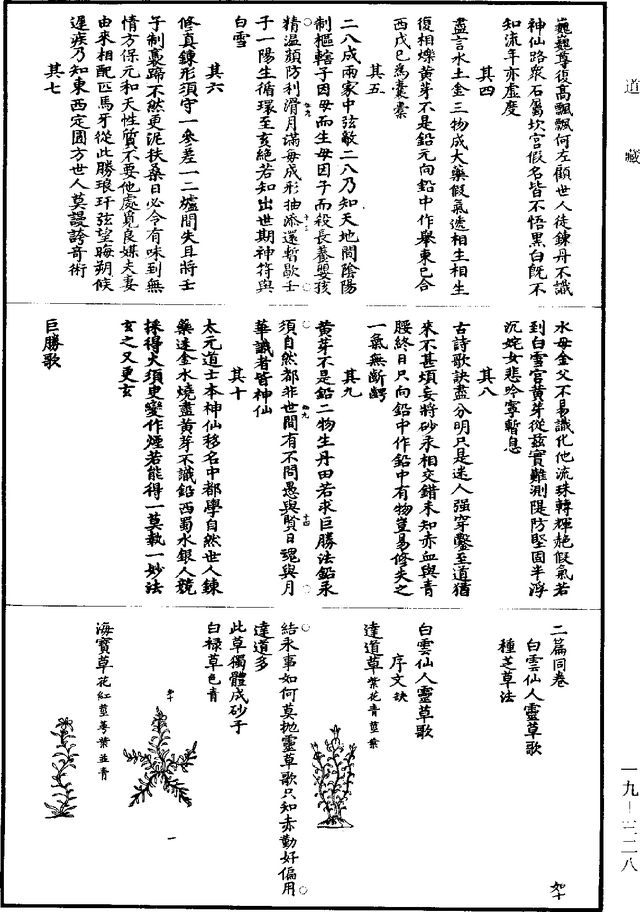 道藏
巍巍尊復高飄飄何左顧世人徒鍊丹不識
神仙路衆石屬坎宮假名皆不悟黑白旣不
知流年亦虛度
其四
盡言水土金三物成大藥假氣遞相生相生
復相爍黃芽不是鉛元向鉛中作舉東已合
西戌巳爲囊橐
其五
二八成兩家中弦敵二八乃知天地間陰陽
制樞轄子因母而生母因子而殺長養嬰孩
精温顏防利滑月滿每成形抽添還暫歇壬
子一陽生循環至亥絕若知出世期神符與
白雪
其六
修真鍊形須守一參差一二爐間失且將士
子制裹蹄不然更泥扶桑日必令有味到無
情方保元和天性質不要他處覓良媒夫妻
由來相配匹馬牙從此勝琅玕弦望晦朔候
遲疾乃知東西定圓方世人莫謾誇奇術
其七
水母金父不易識化他流珠轉輝赩假氣若
到白雪宮黃芽從茲實難測隄防堅固半浮
沉姹女悲吟寧暫息
其八
古詩歌訣盡分明只是迷人强穿鑿至道猶
來不甚煩妄將砂汞相交錯未知赤血與青
腰終日只向鉛中作鉛中有物豈易修失之
一氣無斷齶
其九
黃芽不是鉛二物生丹田若求巨勝法鉛汞
須自然都非世間有不問愚與賢日魂與月
華識者皆神仙
其十
太元道士本神仙移名中都學自然世人鍊
藥迷金水燒盡黃芽不識鉛西蜀水銀人競
採得火須臾變作煙若能得一莫執一妙法
玄之又更玄
巨勝歌
二篇同卷
白雲仙人靈草歌
種芝草法
白雲仙人靈草歌
序文訣
達道草紫花青莖葉
結汞事如何莫拋靈草歌只知赤勤好偏用
達道多
此草獨體成砂子
白祿草色青
海寶草花紅莖蕚葉並青
一九—三二八